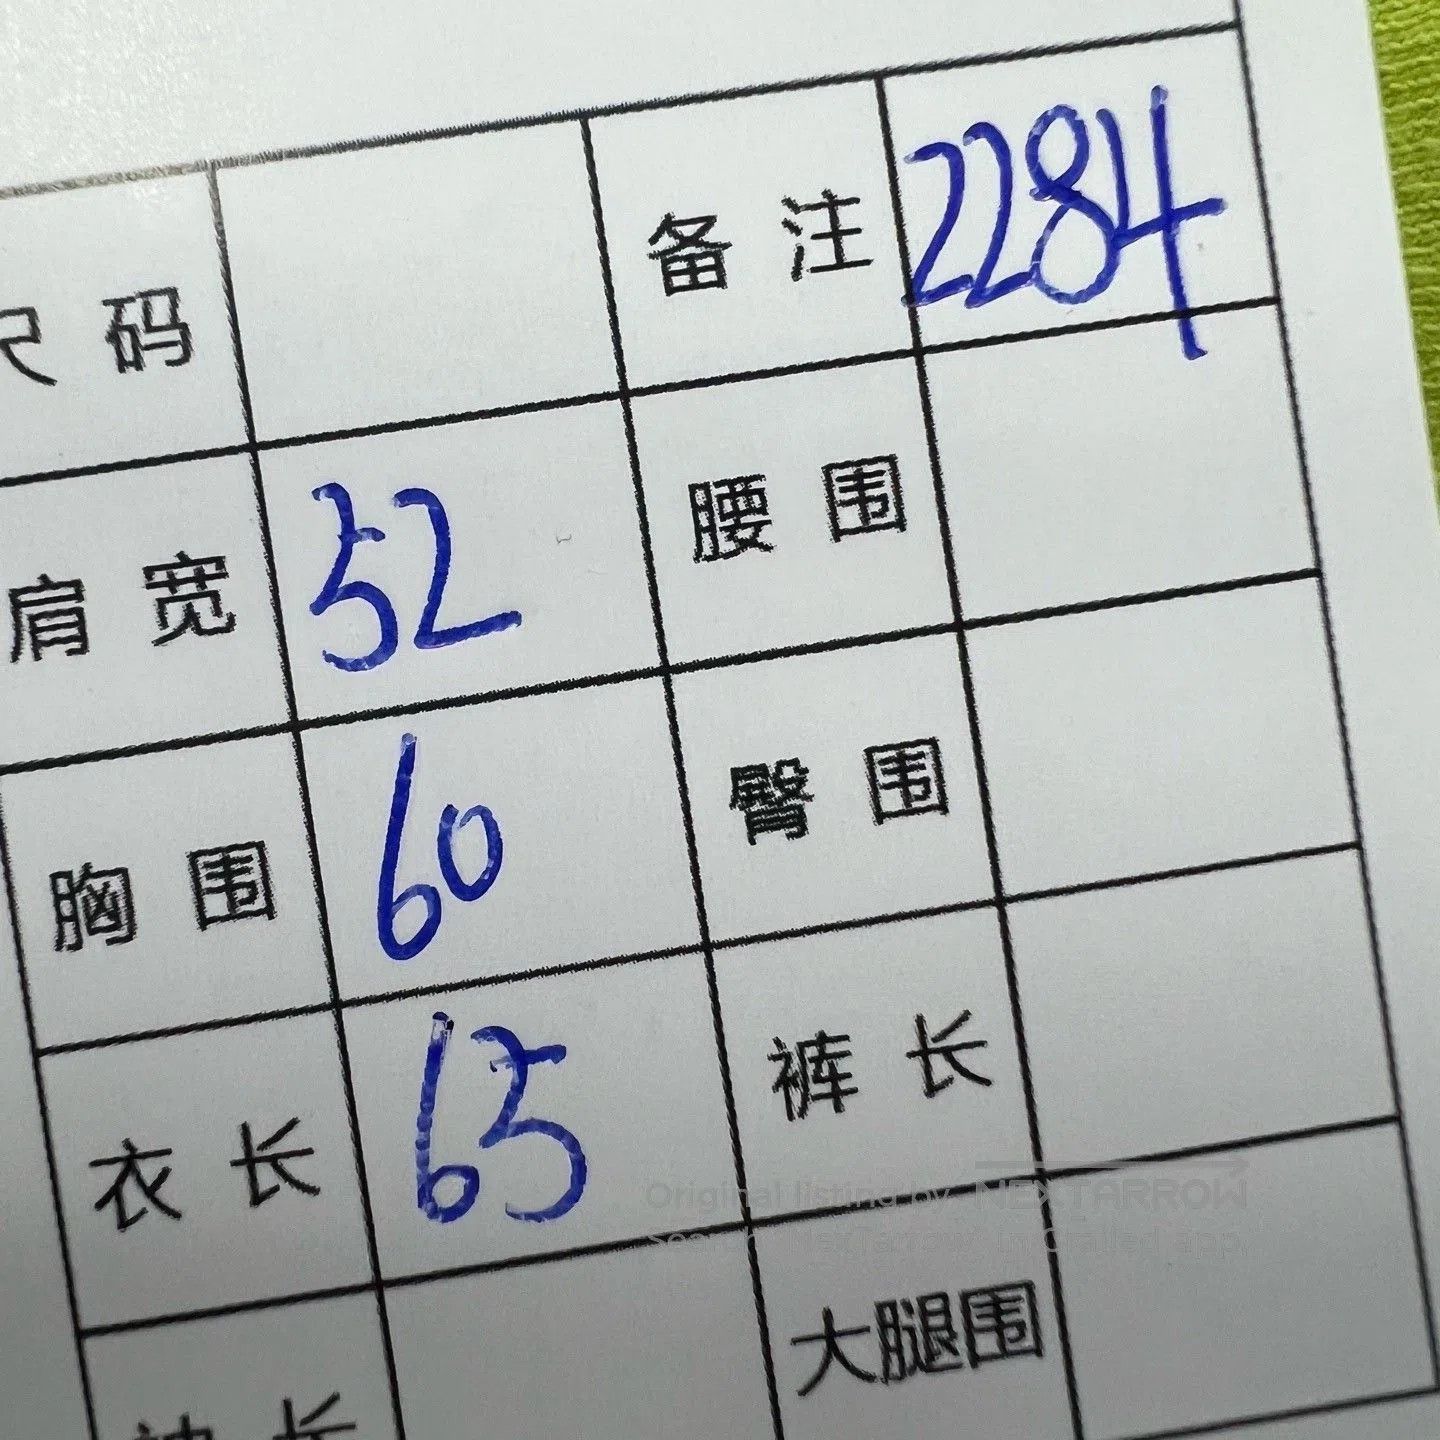 尺 码 备 注 2284
肩 宽 52 腰 围
胸 围 60 臀 围
衣 长 65 裤 长
Original listing by NEXTARROW
大腿围
长